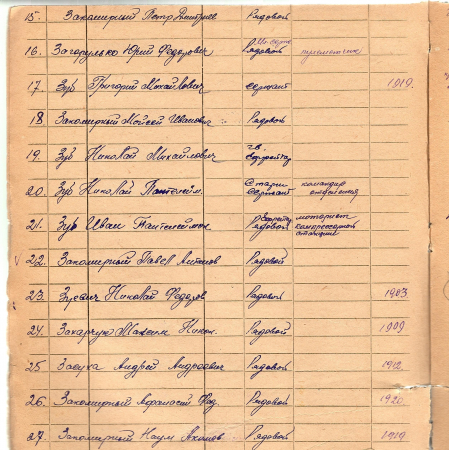 15. Закомирный Петр Дмитриев Рядовой
16. Загорулько Юрий Федорович Рядовой
17. Зуб Григорий Михайлович сержант 1919.
18. Закомирный Мойсей Иванович Рядовой
19. Зуб Николай Михайлович гв. ефрейтор
20. Зуб Николай Пантелейм. Старш. сержант командир отделения
21. Зуб Иван Пантелеймон ефрейтор Рядовой моторист компрессорной станции
22. Закомирный Павел Антонов Рядовой
23. Зуевич Николай Федоров Рядовой 1903
24. Захарчук Максим Никол. Рядовой 1909
25 Заяука Андрей Андреевич Рядовой 1912
26. Закомирный Афанасий Рядовой 1920
27. Закомирный Наум Рядовой 1919